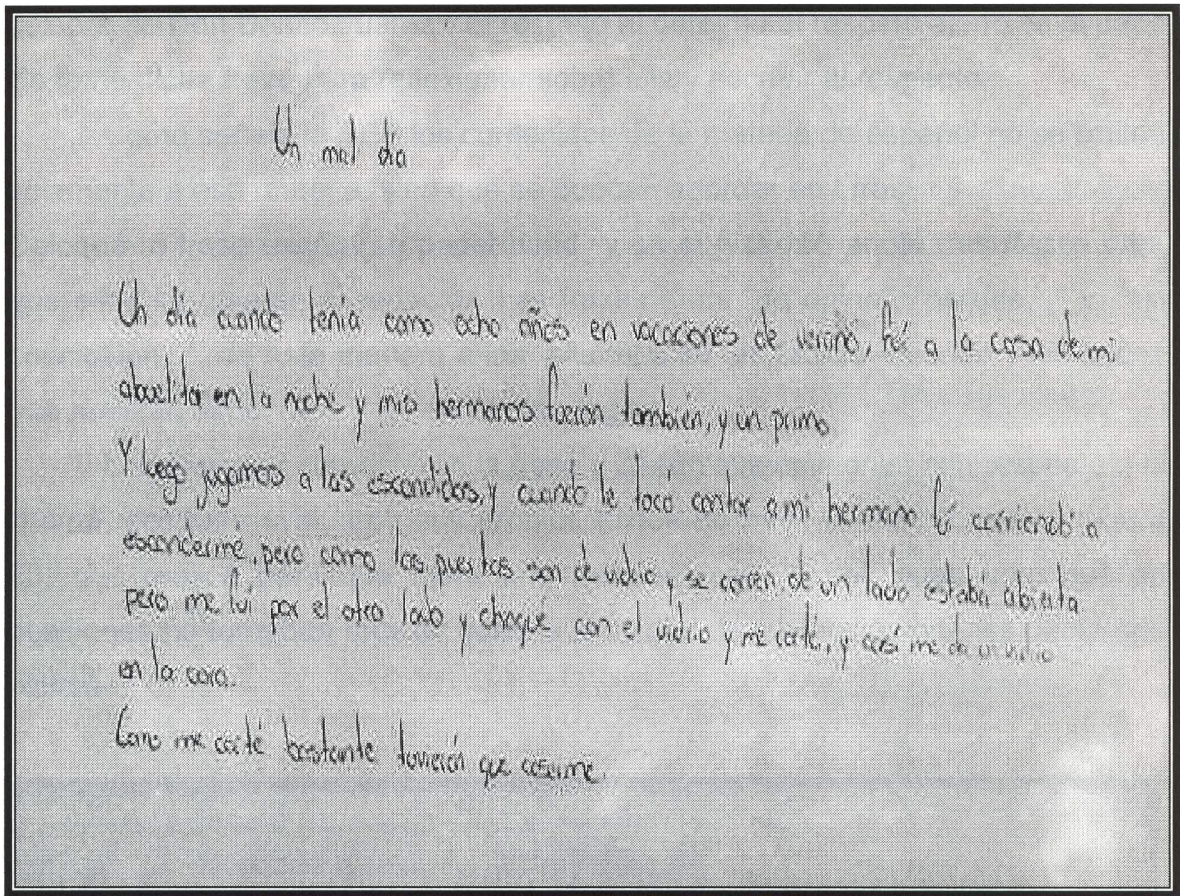 Un mal día
Un día cuando tenía como ocho años en vacaciones de verano, fui a la casa de mi
abuelita en la noche y mis hermanos fuerón también, y un primo.
Y luego jugamos a las escondidas, y cuando le tocó contar a mi hermano fuí corriendo a
esconderme, pero como las puertas son de vidrio y se corren, de un lado estaba abierta
pero me fuí por el otro lado y choqué con el vidrio y me corté, y casi me da un vidrio
en la cara.
Como me corté bastante tuvierón que coserme.